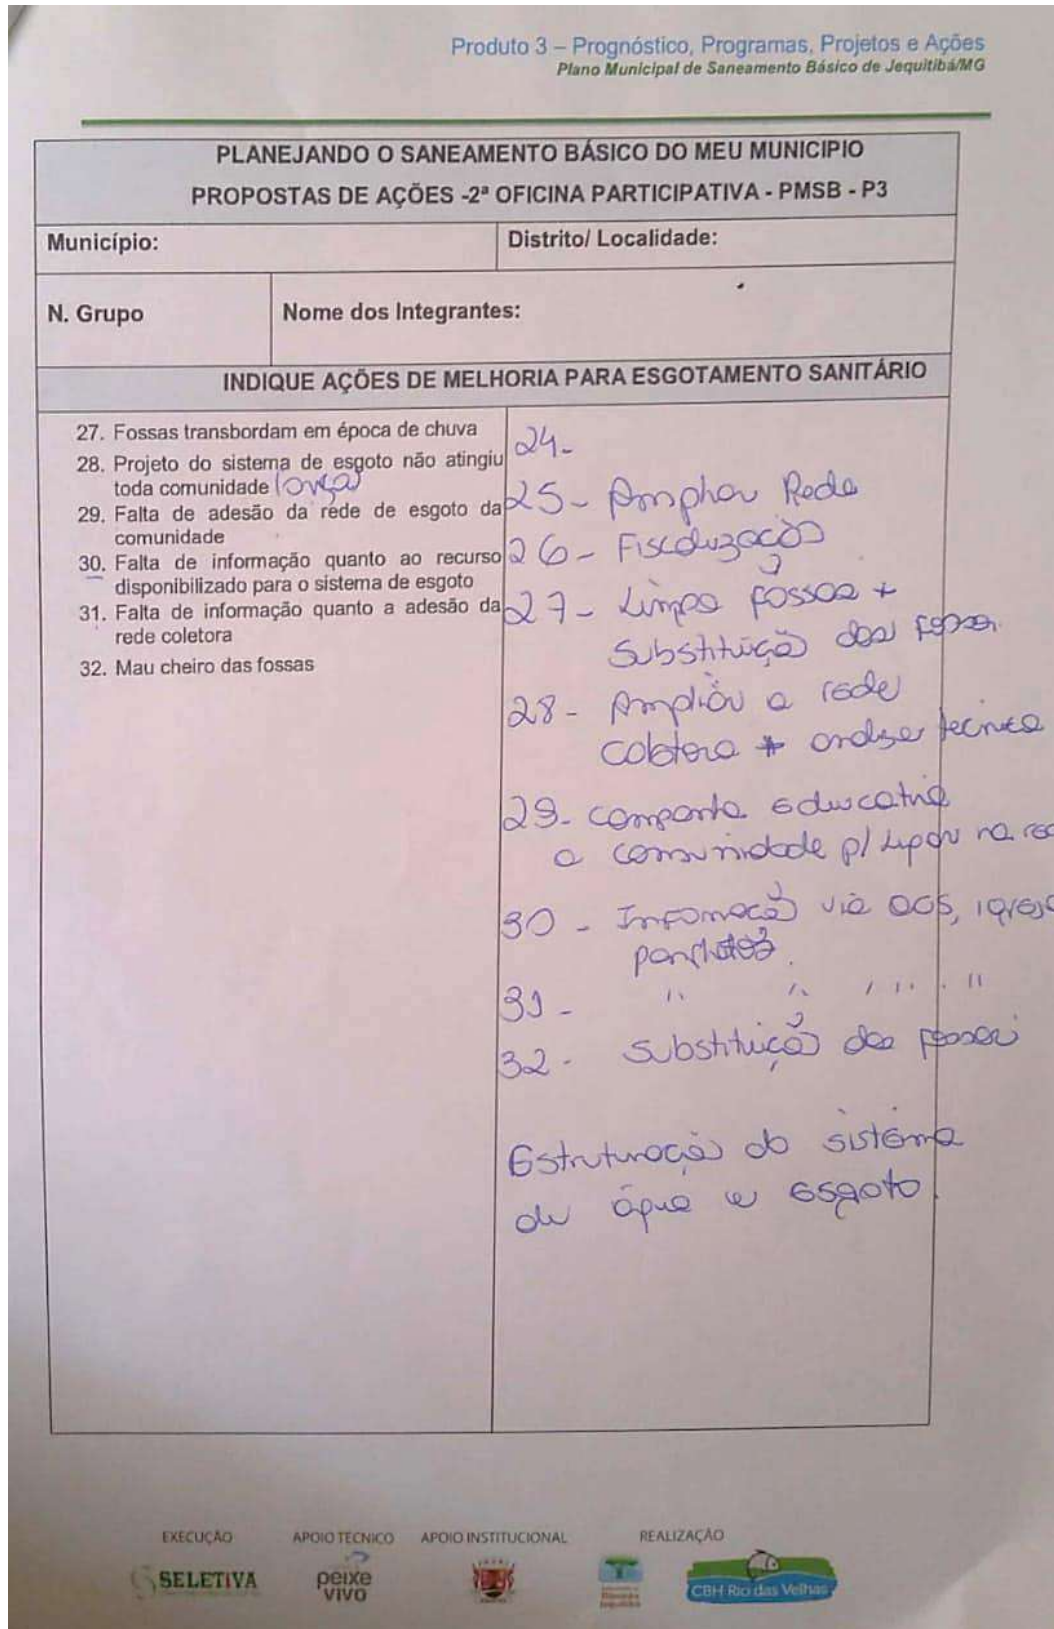 Produto 3 – Prognóstico, Programas, Projetos e Ações
Plano Municipal de Saneamento Básico de Jequitibá/MG
PLANEJANDO O SANEAMENTO BÁSICO DO MEU MUNICIPIO
PROPOSTAS DE AÇÕES -2ª OFICINA PARTICIPATIVA - PMSB - P3
Município:
Distrito/ Localidade:
N. Grupo
Nome dos Integrantes:
INDIQUE AÇÕES DE MELHORIA PARA ESGOTAMENTO SANITÁRIO
27. Fossas transbordam em época de chuva
28. Projeto do sistema de esgoto não atingiu
toda comunidade
29. Falta de adesão da rede de esgoto da
comunidade
30. Falta de informação quanto ao recurso
disponibilizado para o sistema de esgoto
31. Falta de informação quanto a adesão da
rede coletora
32. Mau cheiro das fossas
24-
25- Ampliar Rede
26- Fiscalização
27- Limpa fossas +
Substituição das fossas
28- Ampliar a rede
coletora + analise tecnica
29- campanha educativa
a comunidade p/ ligar na
30- Informação via ACS,
panfletos.
31- " " " " "
32- Substituição das fossas
Estruturação do sistema
de água e esgoto.
EXECUÇÃO
APOIO TÉCNICO
APOIO INSTITUCIONAL
REALIZAÇÃO
SELETIVA
peixe
vivo
CBH Rio das Velhas